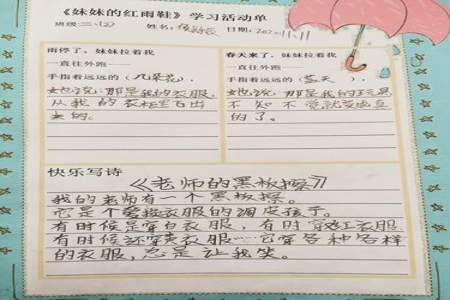 《妹妹的红雨鞋》学习活动单
班级:二、(2) 姓名: 日期:202 11.11
雨停了，妹妹拉着我
一直往外跑——
手指着远远的（九朵花），
她说：那是我的衣服，
从我的衣柜里飞出
去的。
春天来了，妹妹拉着我
一直往外跑——
手指着远远的（蓝天），
她说：那是我的玩具
不知不觉就变成真
的了。
快乐写诗
《老师的黑板擦》
我的老师有一个黑板擦。
它是个爱换衣服的调皮孩子。
有时候是穿白衣服，有时穿红衣服
有时候还穿黄衣服…它穿各种各样
的衣服，总是让我笑。